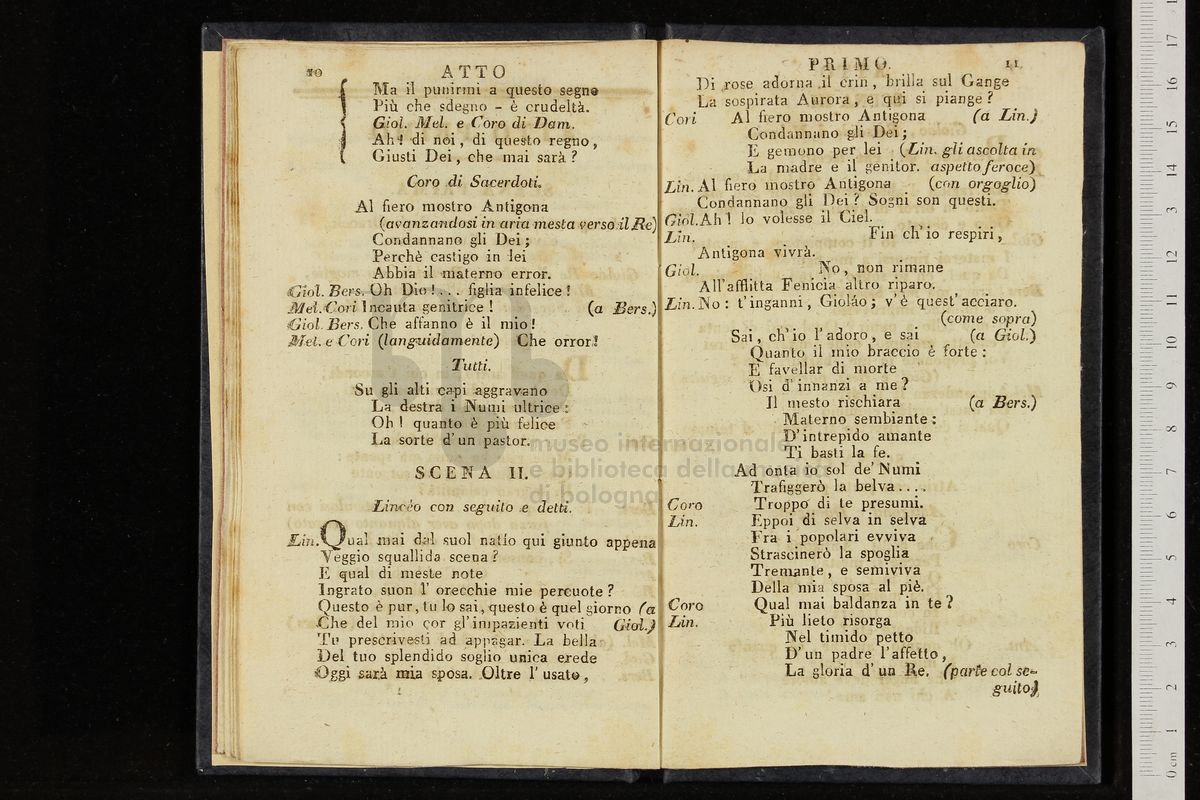 10 ATTO
Ma il punirmi a questo segno
Più che sdegno - è crudeltà.
Giol. Mel. e Coro di Dam.
Ah! di noi, di questo regno,
Giusti Dei, che mai sarà?
Coro di Sacerdoti.
Al fiero mostro Antigona
(avanzandosi in aria mesta verso il Re)
Condannano gli Dei;
Perchè castigo in lei
Abbia il materno error.
Giol. Bers. Oh Dio!... figlia infelice!
Mel. Cori Incauta genitrice! (a Bers.)
Giol. Bers. Che affanno è il mio!
Mel. e Cori (languidamente) Che orror!
Tutti.
Su gli alti capi aggravano
La destra i Numi ultrice:
Oh! quanto è più felice
La sorte d'un pastor.
SCENA II.
Lincéo con seguito e detti.
Lin. Qual mai dal suol natío qui giunto appena
Veggio squallida scena?
E qual di meste note
Ingrato suon l'orecchie mie percuote?
Questo è pur, tu lo sai, questo è quel giorno (a
Che del mio cor gl'impazienti voti Giol.)
Tu prescrivesti ad appagar. La bella
Del tuo splendido soglio unica erede
Oggi sarà mia sposa. Oltre l'usato,
PRIMO. 11
Di rose adorna il crin, brilla sul Gange
La sospirata Aurora, e qui si piange?
Cori Al fiero mostro Antigona (a Lin.)
Condannano gli Dei;
E gemono per lei (Lin. gli ascolta in
La madre e il genitor. aspetto feroce)
Lin. Al fiero mostro Antigona (con orgoglio)
Condannano gli Dei? Sogni son questi.
Giol. Ah! lo volesse il Ciel.
Lin. Fin ch'io respiri,
Antigona vivrà.
Giol. No, non rimane
All'afflitta Fenicia altro riparo.
Lin. No: t'inganni, Gioláo; v'è quest'acciaro.
(come sopra)
Sai, ch'io l'adoro, e sai (a Giol.)
Quanto il mio braccio è forte:
E favellar di morte
Osi d'innanzi a me?
Il mesto rischiara (a Bers.)
Materno sembiante:
D'intrepido amante
Ti basti la fe.
Ad onta io sol de' Numi
Trafiggerò la belva....
Coro Troppo di te presumi.
Lin. Eppoi di selva in selva
Fra i popolari evviva
Strascinerò la spoglia
Tremante, e semiviva
Della mia sposa al piè.
Coro Qual mai baldanza in te?
Lin. Più lieto risorga
Nel timido petto
D'un padre l'affetto,
La gloria d'un Re. (parte col se-
guito)
museo internazionale
e biblioteca della musica
di bologna
0 cm 1 2 3 4 5 6 7 8 9 10 11 12 13 14 15 16 17